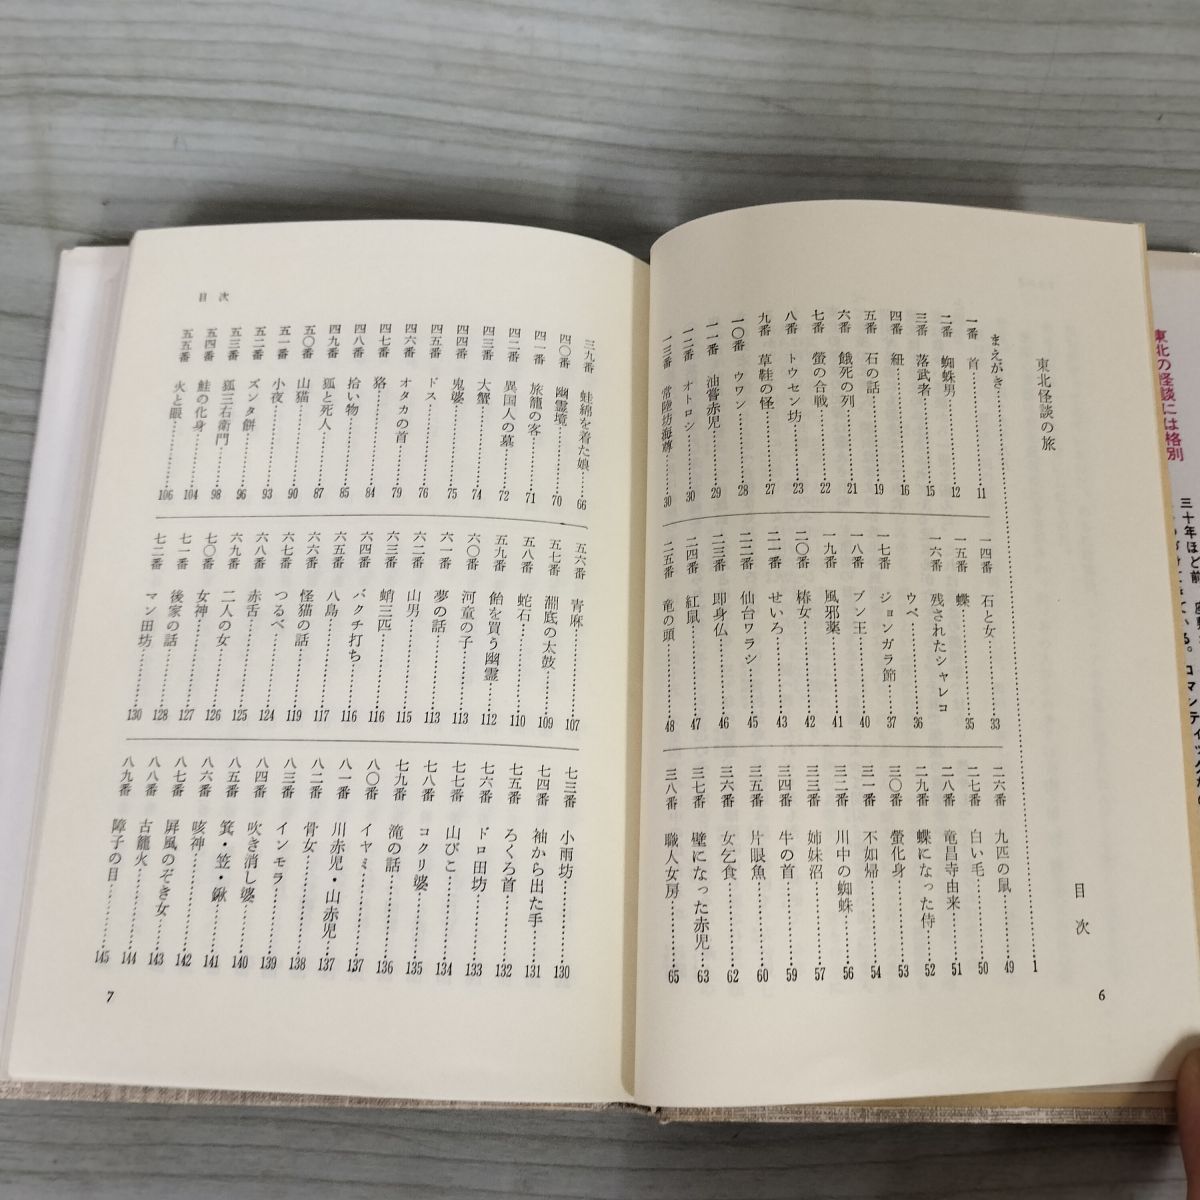 東北の怪談には格別
三十年ほど前、
東北怪談の旅
目次
まえがき 1
一番 首 11
二番 蜘蛛男 12
三番 落武者 15
四番 紐 16
五番 石の話 19
六番 餓死の列 21
七番 螢の合戦 22
八番 トウセン坊 23
九番 草鞋の怪 27
一〇番 ウワン 28
一一番 油嘗赤児 29
一二番 オトロシ 30
一三番 常陸坊海尊 30
一四番 石と女 33
一五番 蝶 35
一六番 残されたシャレコウベ 36
一七番 ジョンガラ節 37
一八番 ブン王 40
一九番 風邪薬 41
二〇番 椿女 42
二一番 せいろ 43
二二番 仙台ワラシ 45
二三番 即身仏 46
二四番 紅鼠 47
二五番 竜の頭 48
二六番 九匹の鼠 49
二七番 白い毛 50
二八番 竜昌寺由来 51
二九番 蝶になった侍 52
三〇番 螢化身 53
三一番 不如帰 54
三二番 川中の蜘蛛 56
三三番 姉妹沼 57
三四番 牛の首 59
三五番 片眼魚 60
三六番 女乞食 62
三七番 壁になった赤児 63
三八番 職人女房 65
6
目次
三九番 蛙綿を着た娘 66
四〇番 幽霊境 70
四一番 旅籠の客 71
四二番 異国人の墓 72
四三番 大蟹 74
四四番 鬼婆 75
四五番 ドス 76
四六番 オタカの首 79
四七番 狢 84
四八番 拾い物 85
四九番 狐と死人 87
五〇番 山猫 90
五一番 小夜 93
五二番 ズンタ餅 96
五三番 狐三右衛門 98
五四番 鮭の化身 104
五五番 火と眼 106
五六番 青麻 107
五七番 淵底の太鼓 109
五八番 蛇石 110
五九番 飴を買う幽霊 112
六〇番 河童の子 113
六一番 夢の話 113
六二番 山男 115
六三番 蛸三匹 116
六四番 バクチ打ち 116
六五番 八島 117
六六番 怪猫の話 119
六七番 つるべ 124
六八番 赤舌 125
六九番 二人の女 126
七〇番 女神 127
七一番 後家の話 128
七二番 マン田坊 130
七三番 小雨坊 130
七四番 袖から出た手 131
七五番 ろくろ首 132
七六番 ドロ田坊 133
七七番 山びこ 134
七八番 コクリ婆 135
七九番 滝の話 136
八〇番 イヤミ 137
八一番 川赤児・山赤児 137
八二番 骨女 138
八三番 インモラ 139
八四番 吹き消し婆 140
八五番 箕・笠・鍬 141
八六番 咳神 142
八七番 屏風のぞき女 143
八八番 古籠火 144
八九番 障子の目 145
7